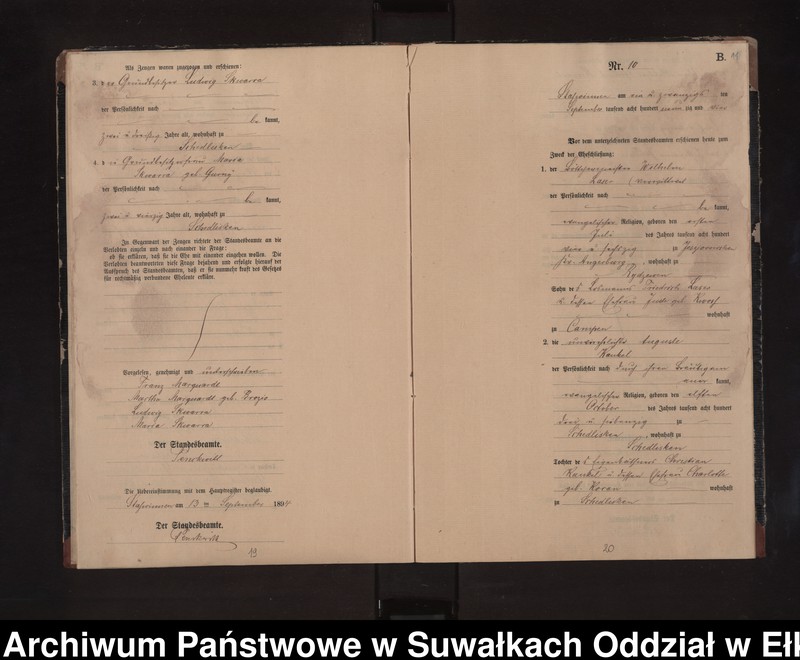 Als Zeugen waren zugezogen und erschienen:
3. der Grundbesitzer Ludwig Skwarra
der Persönlichkeit nach
be kannt,
zwei u dreißig Jahre alt, wohnhaft zu
Schedlisken
4. die Grundbesitzerfrau Maria
Skwarra geb.
der Persönlichkeit nach
be kannt,
zwei u vierzig Jahre alt, wohnhaft zu
Schedlisken
In Gegenwart der Zeugen richtete der Standesbeamte an die
Verlobten einzeln und nach einander die Frage:
ob sie erklären, daß sie die Ehe mit einander eingehen wollen. Die
Verlobten beantworteten diese Frage bejahend und erfolgte hierauf der
Ausspruch des Standesbeamten, daß er sie nunmehr kraft des Gesetzes
für rechtmäßig verbundene Eheleute erkläre.
Vorgelesen, genehmigt und unterschrieben
Franz Marquardt
Martha Marquardt geb.
Ludwig Skwarra
Maria Skwarra
Der Standesbeamte.
Die Uebereinstimmung mit dem Hauptregister beglaubigt.
am 13 ten September 1894
Der Standesbeamte.
19
B.
Nr. 10
am ein u zwanzigs ten
September tausend acht hundert neunzig und vier
Vor dem unterzeichneten Standesbeamten erschienen heute zum
Zweck der Eheschließung:
1. der Wilhelm
der Persönlichkeit nach
be kannt,
evangelischer Religion, geboren den ersten
Juli des Jahres tausend acht hundert
zu
Kr. Angerburg, wohnhaft zu
Rydzewen
Sohn des Friedrich
u dessen Ehefrau geb.
wohnhaft
zu Campen
2. die unverehelichte Auguste
Kankel
der Persönlichkeit nach durch ihren Bräutigam
kannt,
evangelischer Religion, geboren den elften
October des Jahres tausend acht hundert
drei u siebenzig zu
Schedlisken, wohnhaft zu
Schedlisken
Tochter des Christian
Kankel u dessen Ehefrau Charlotte
geb. wohnhaft
zu Schedlisken
20
Archiwum Państwowe w Suwałkach Oddział w Ełk